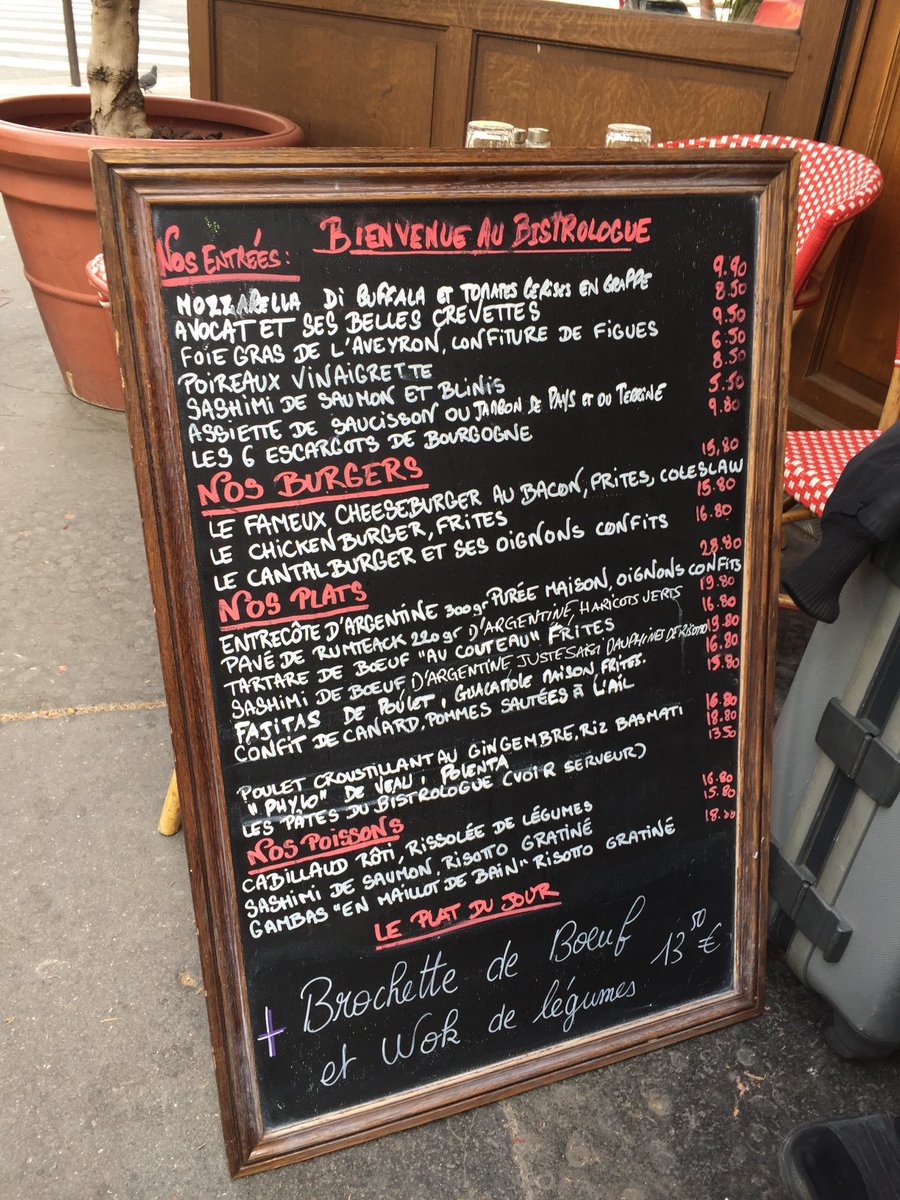 BIENVENUE AU BISTROLOGUE
NOS ENTRÉES:
MOZZARELLA DI BUFFALA ET TOMATES CERISES EN GRAPPE 9.90
AVOCAT ET SES BELLES CREVETTES 8.50
FOIE GRAS DE L'AVEYRON, CONFITURE DE FIGUES 9.50
POIREAUX VINAIGRETTE 6.50
SASHIMI DE SAUMON ET BLINIS 8.50
ASSIETTE DE SAUCISSON OU JAMBON DE PAYS ET OU TERRINE 5.50
LES 6 ESCARGOTS DE BOURGOGNE 9.80
NOS BURGERS
LE FAMEUX CHEESEBURGER AU BACON, FRITES, COLESLAW 15,80
LE CHICKENBURGER, FRITES 15.80
LE CANTALBURGER ET SES OIGNONS CONFITS 16.80
NOS PLATS
ENTRECÔTE D'ARGENTINE 300gr PURÉE MAISON, OIGNONS CONFITS 28.80
PAVÉ DE RUMTEACK 220gr D'ARGENTINE, HARICOTS VERTS 19.80
TARTARE DE BŒUF "AU COUTEAU" FRITES 16.80
SASHIMI DE BŒUF D'ARGENTINE JUSTE SAISI DAUPHINES DE RISOTTO 19.80
FAJITAS DE POULET, GUACAMOLE MAISON FRITES. 16.80
CONFIT DE CANARD, POMMES SAUTÉES À L'AIL 15.80
POULET CROUSTILLANT AU GINGEMBRE, RIZ BASMATI 16.80
"PHYLO" DE VEAU, POLENTA 18.80
LES PÂTES DU BISTROLOGUE (VOIR SERVEUR) 13.50
NOS POISSONS
CABILLAUD RÔTI, RISSOLÉE DE LÉGUMES 16.80
SASHIMI DE SAUMON, RISOTTO GRATINÉ 15.80
GAMBAS "EN MAILLOT DE BAIN" RISOTTO GRATINÉ
LE PLAT DU JOUR
+ Brochette de Bœuf 13 50 €
et Wok de légumes